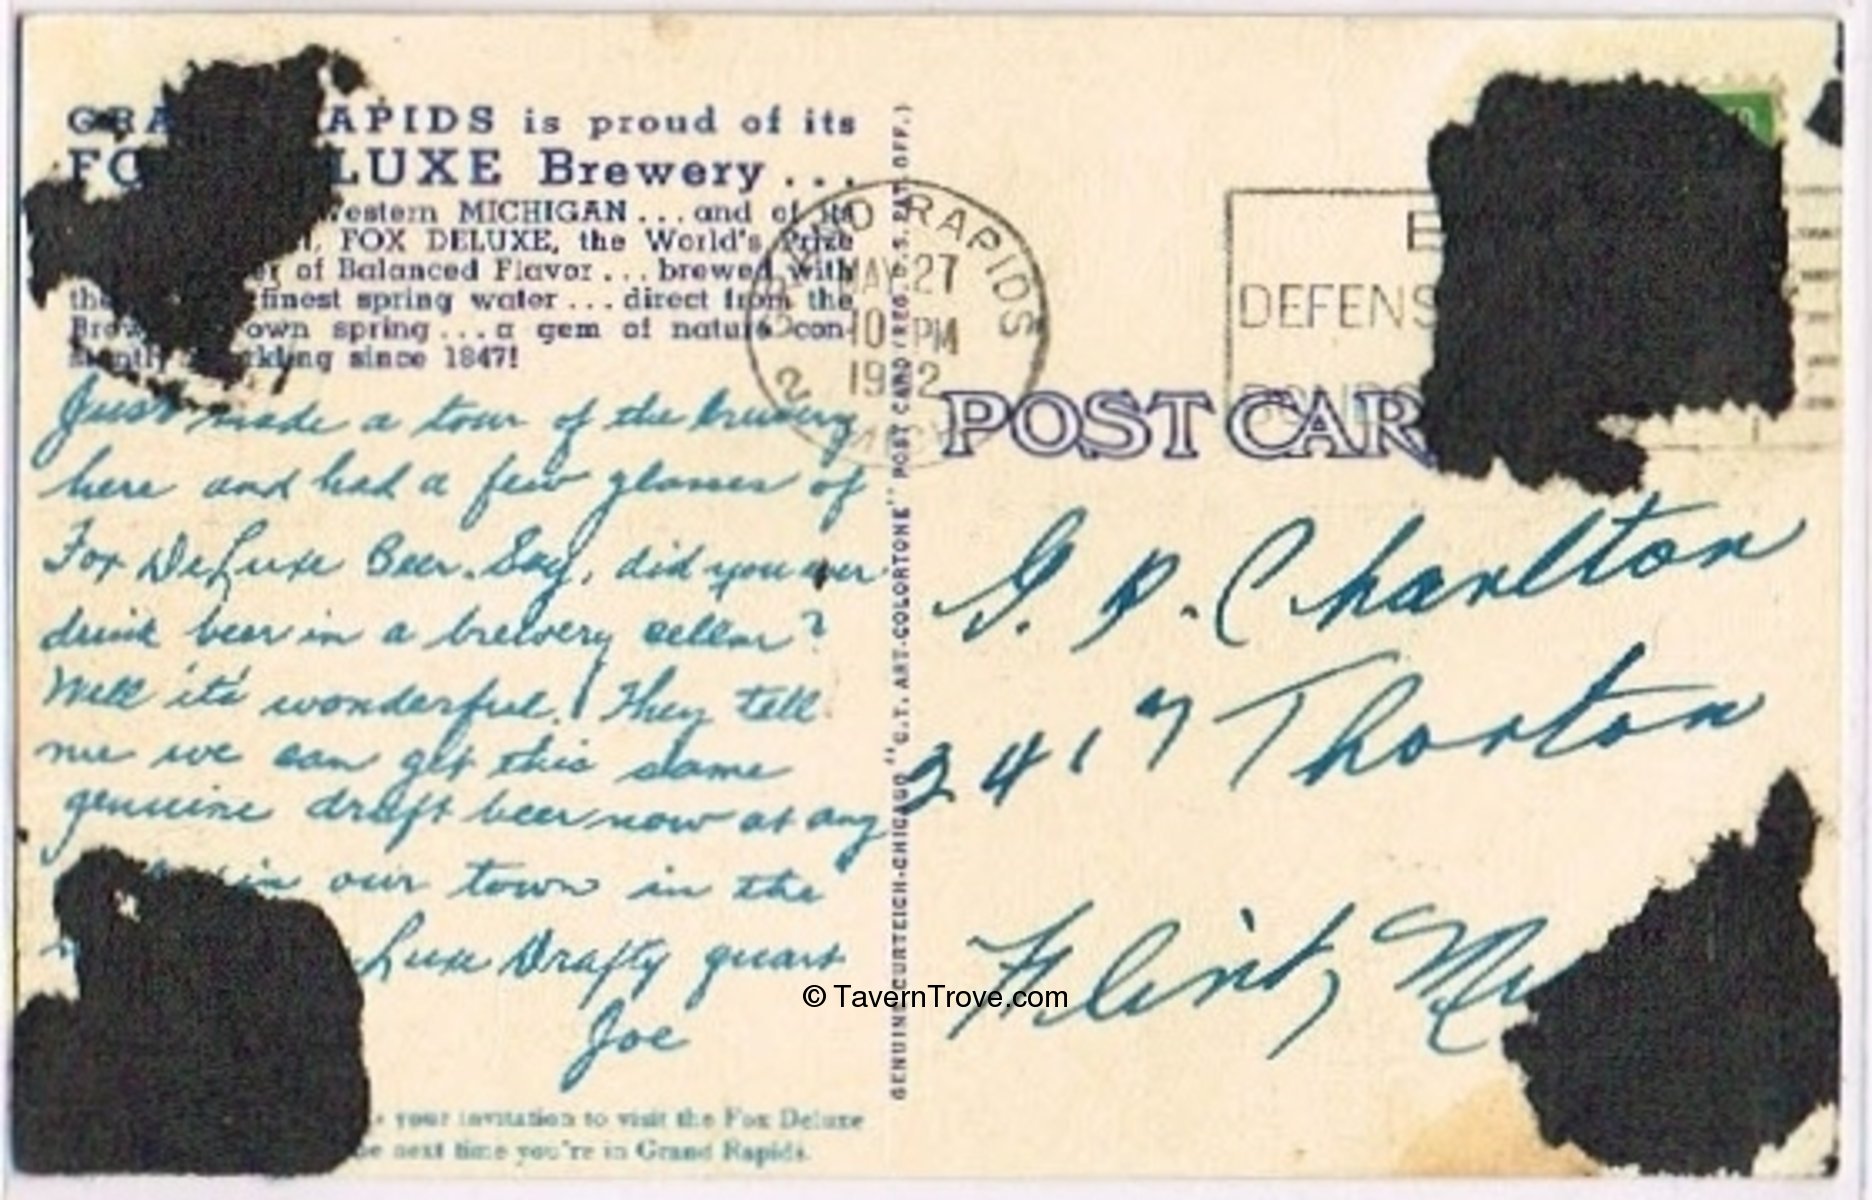 RAPIDS is proud of its
LUXE Brewery...
Western MICHIGAN...and of its
FOX DELUXE, the World's Prize
of Balanced Flavor...brewed with
the finest spring water...direct from the
own spring...a gem of nature con-
since 1847!
Just made a tour of the brewery
here and had a few glasses of
Fox DeLuxe Beer. Say, did you ever
drink beer in a brewery cellar?
Well it's wonderful! They tell
me we can get this same
genuine draft beer now at any
in our town in the
Luxe Drafty quart
Joe
your invitation to visit the Fox Deluxe
next time you're in Grand Rapids.
GENUINE CURTEICH-CHICAGO "C.T. ART-COLORTONE" POST CARD (REG. U.S. PAT. OFF.)
RAPIDS
MAY 27
10 PM
2
DEFENS
POST CAR
G. P. Charlton
2417 Thorton
Flint,
© TavernTrove.com